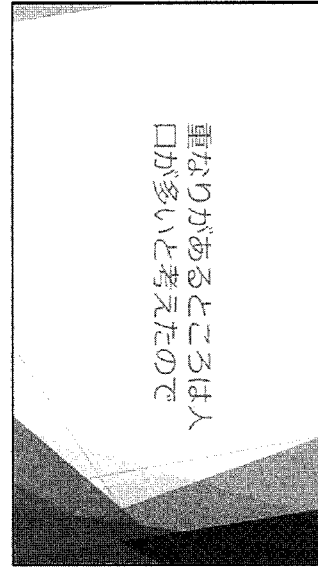 重なりがあるところは人
口が多いと考えたので